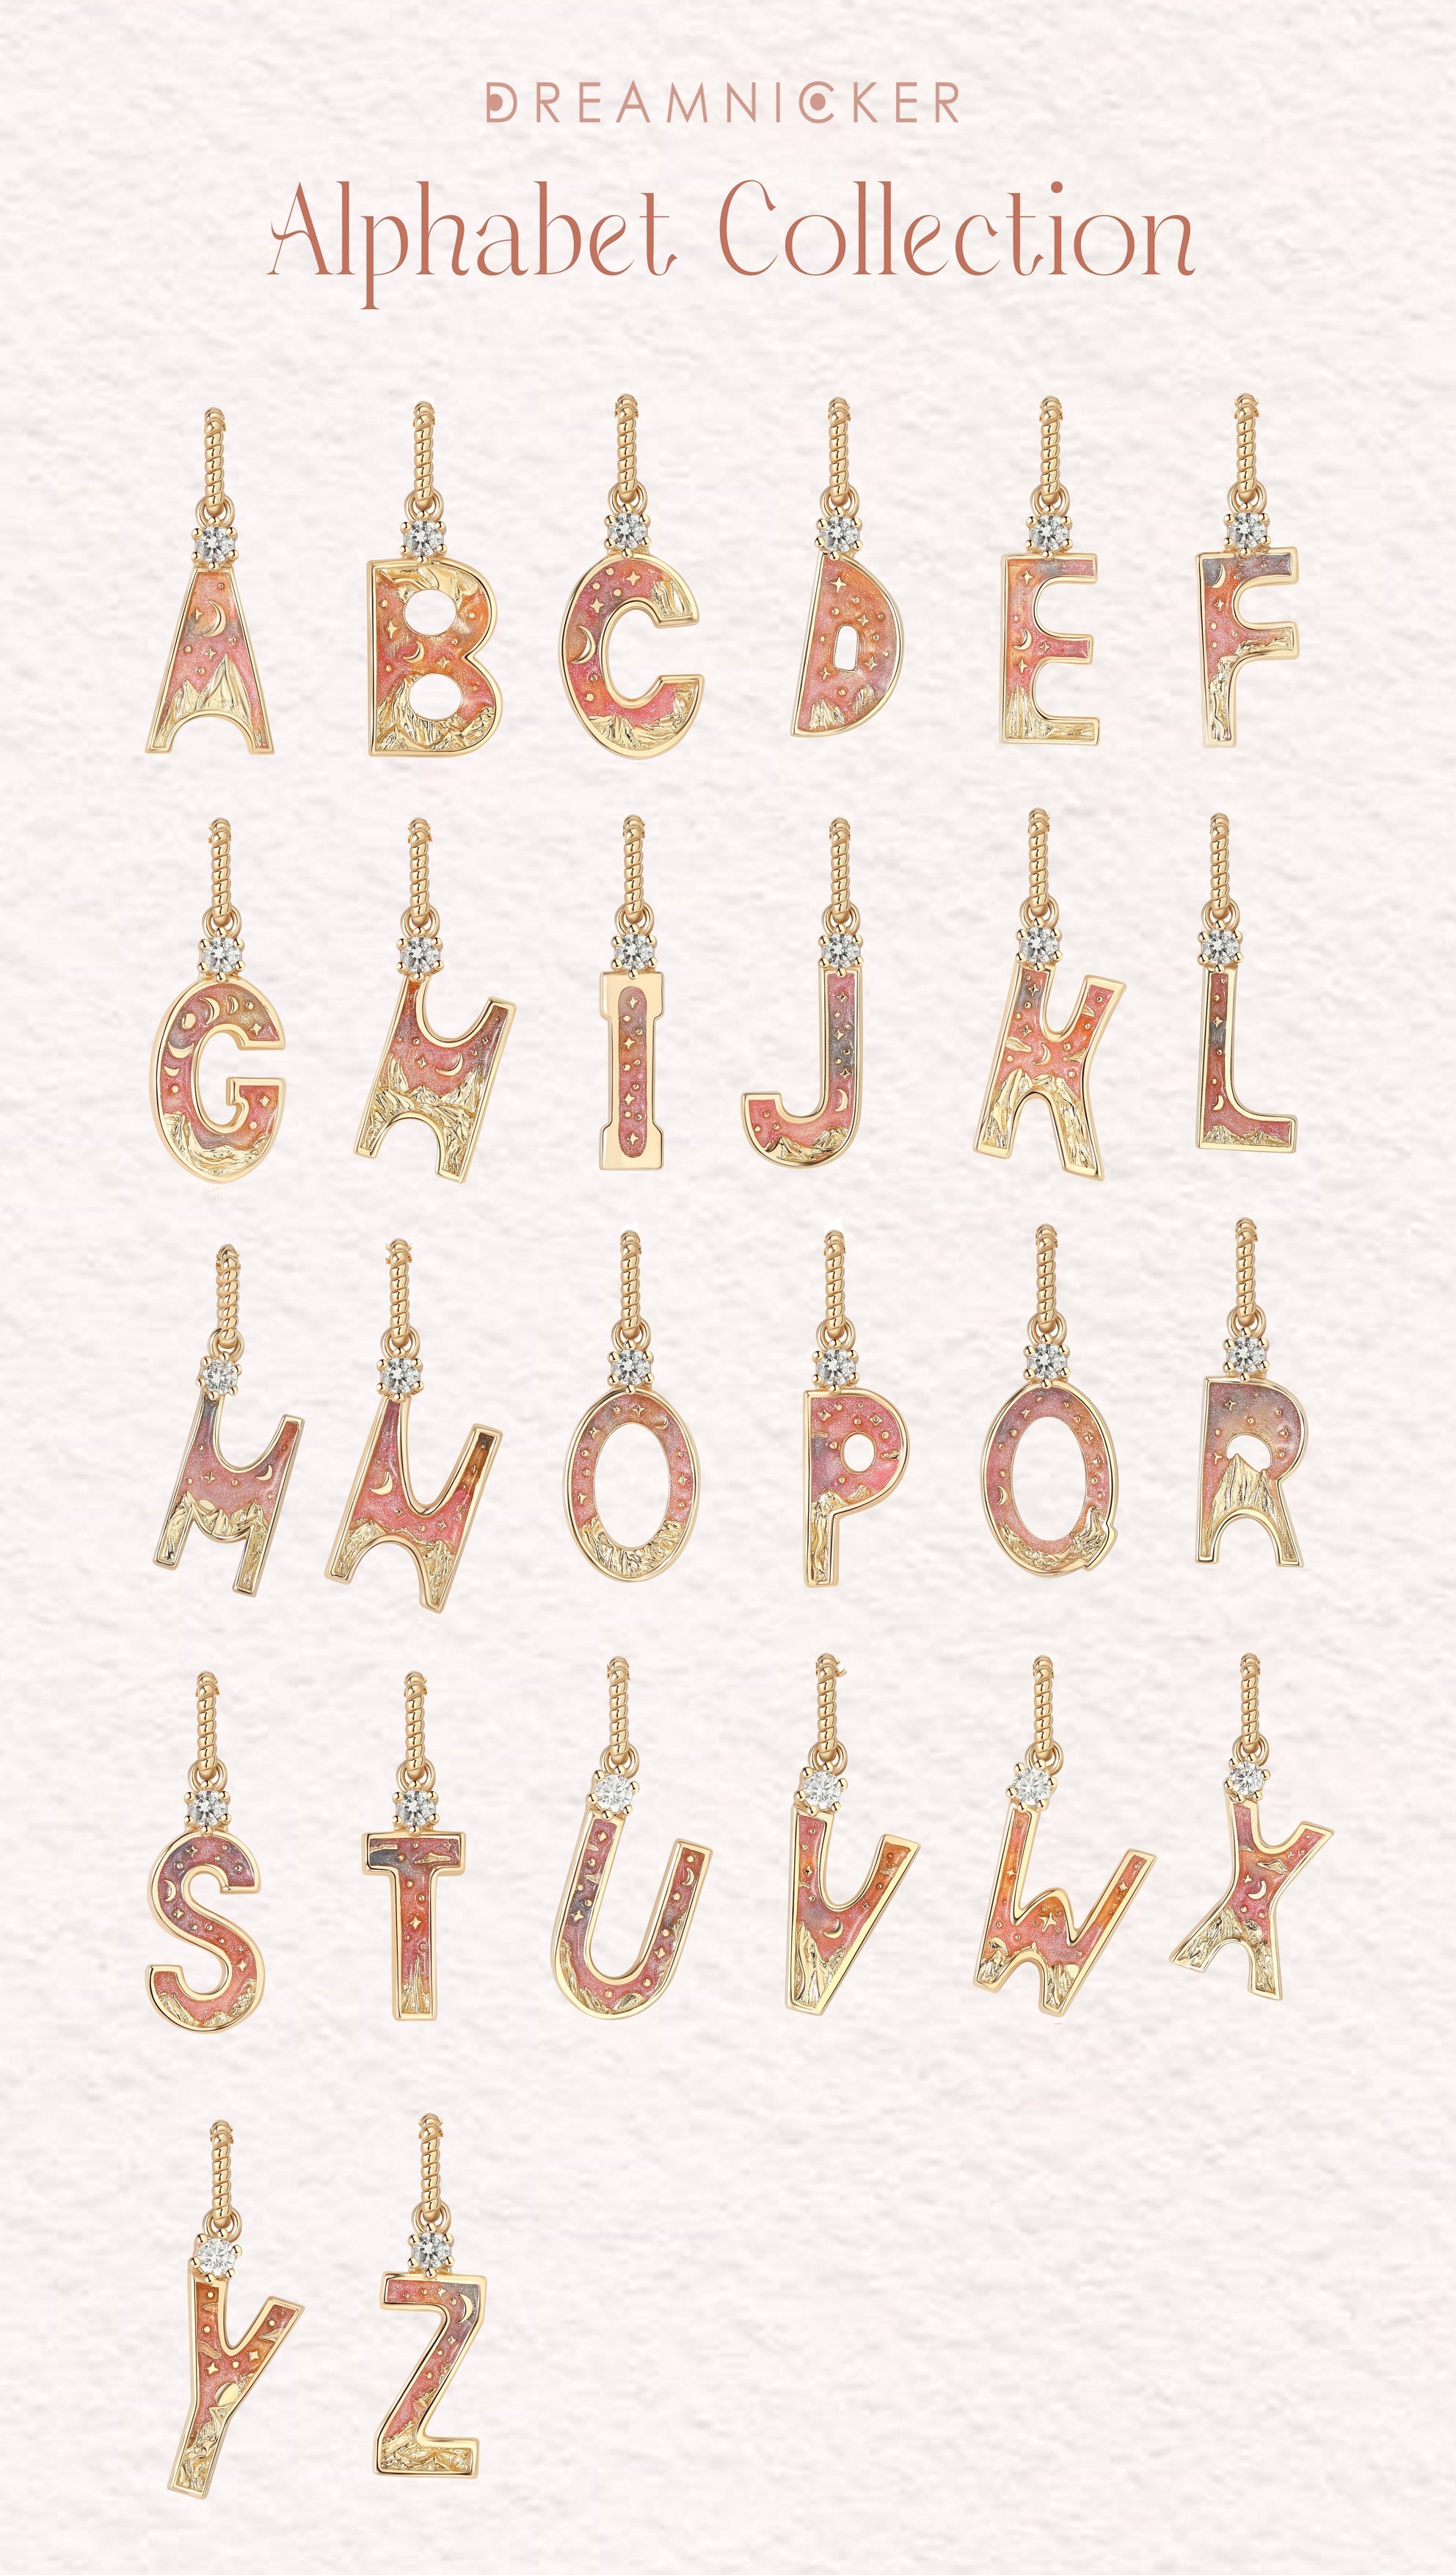 DREAMNICKER
Alphabet Collection
A B C D E F
G H I J K L
M N O P Q R
S T U V W X
Y Z